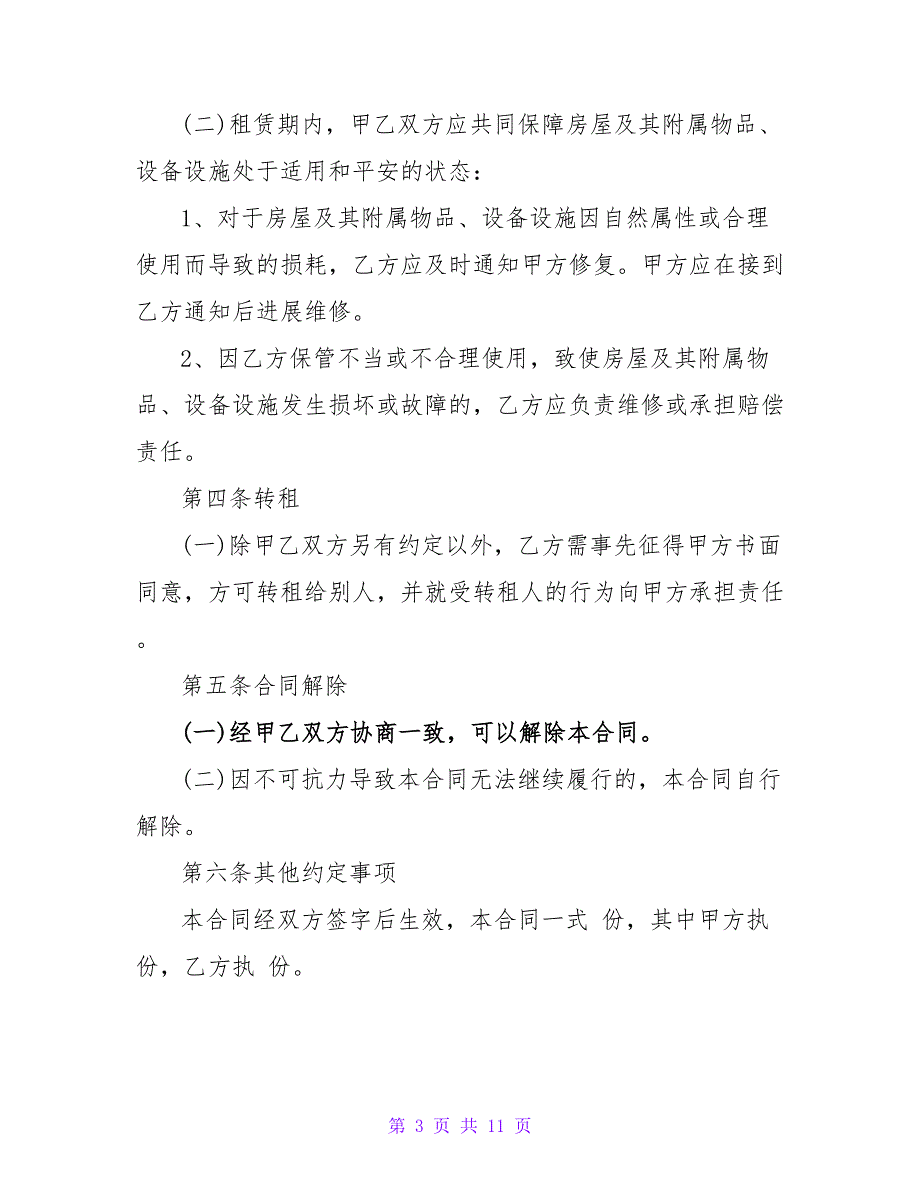 (二)租赁期内，甲乙双方应共同保障房屋及其附属物品、
设备设施处于适用和平安的状态：
1、对于房屋及其附属物品、设备设施因自然属性或合理
使用而导致的损耗，乙方应及时通知甲方修复。甲方应在接到
乙方通知后进展维修。
2、因乙方保管不当或不合理使用，致使房屋及其附属物
品、设备设施发生损坏或故障的，乙方应负责维修或承担赔偿
责任。
第四条转租
(一)除甲乙双方另有约定以外，乙方需事先征得甲方书面
同意，方可转租给别人，并就受转租人的行为向甲方承担责任
。
第五条合同解除
(一)经甲乙双方协商一致，可以解除本合同。
(二)因不可抗力导致本合同无法继续履行的，本合同自行
解除。
第六条其他约定事项
本合同经双方签字后生效，本合同一式 份，其中甲方执
份，乙方执 份。
第 3 页 共 11 页